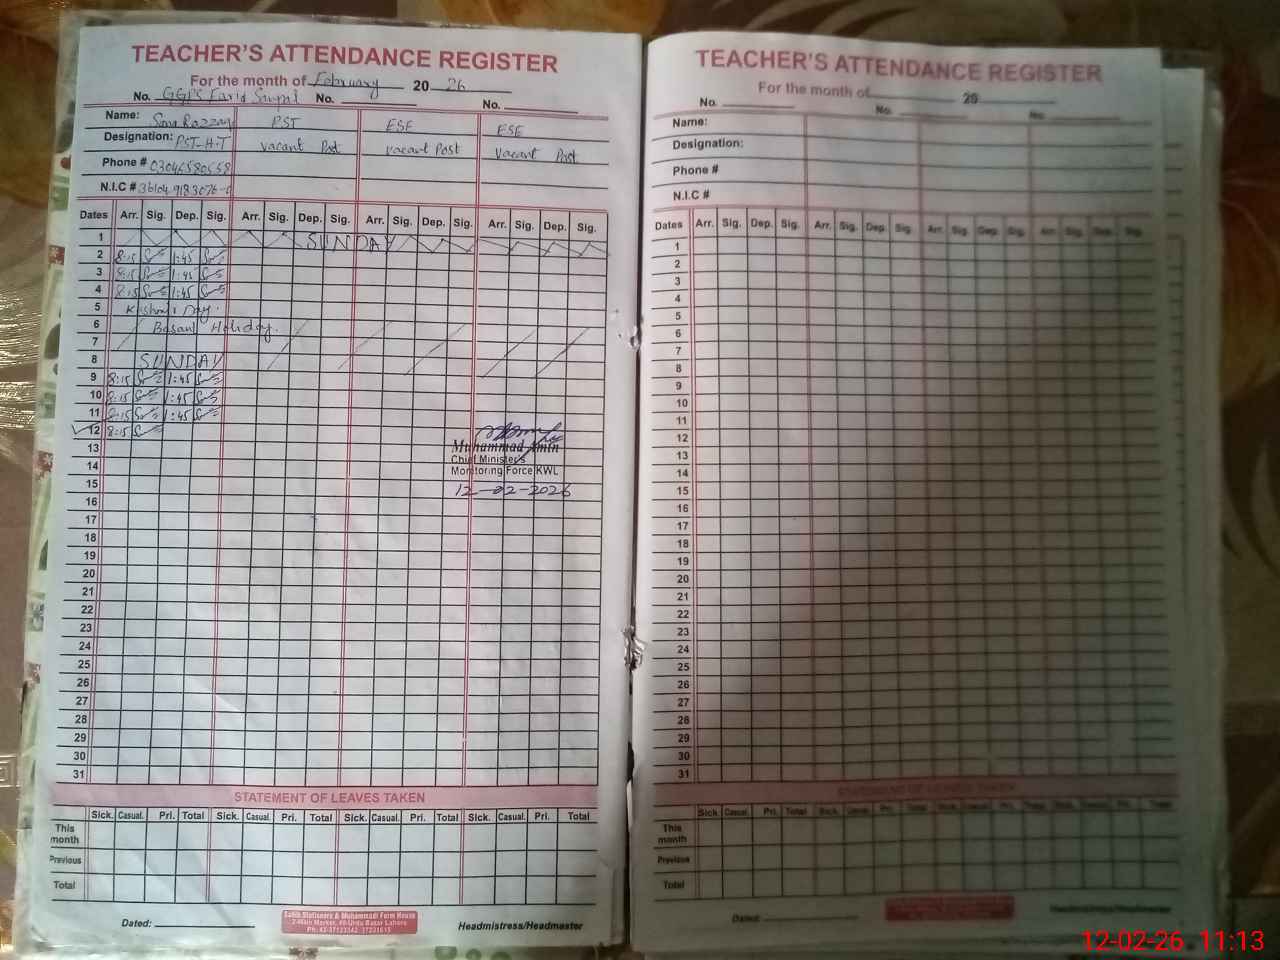 TEACHER'S ATTENDANCE REGISTER
For the month of February 2026
No. GGPS Farid No. No.
Name: Sana Razzaq PST ESE ESE
Designation: PST-H-T vacant Post vacant Post vacant Post
Phone #
N.I.C #
Dates Arr. Sig. Dep. Sig. Arr. Sig. Dep. Sig. Arr. Sig. Dep. Sig. Arr. Sig. Dep. Sig.
1 SUNDAY
2 8:15 1:45
3 8:15 1:45
4 8:15 1:45
5 Kashmir Day.
6 Basant Holiday.
7
8 SUNDAY
9 8:15 1:45
10 8:15 1:45
11 8:15 1:45
12 8:15
13 Muhammad Amin
Chief Minister's
14 Monitoring Force KWL
15 12-02-2026
16
17
18
19
20
21
22
23
24
25
26
27
28
29
30
31
STATEMENT OF LEAVES TAKEN
Sick. Casual. Pri. Total Sick. Casual. Pri. Total Sick. Casual. Pri. Total Sick. Casual. Pri. Total
This month
Previous
Total
Dated:
Sahib Stationers & Muhammadi Form House
2-Main Market, 40-Urdu Bazar Lahore
Headmistress/Headmaster
TEACHER'S ATTENDANCE REGISTER
For the month of 20
No. No. No.
Name:
Designation:
Phone #
N.I.C #
Dates Arr. Sig. Dep. Sig. Arr. Sig. Dep. Sig. Arr. Sig. Dep. Sig. Arr. Sig. Dep. Sig.
1
2
3
4
5
6
7
8
9
10
11
12
13
14
15
16
17
18
19
20
21
22
23
24
25
26
27
28
29
30
31
STATEMENT OF LEAVES TAKEN
Sick. Casual. Pri. Total Sick. Casual. Pri. Total Sick. Casual. Pri. Total Sick. Casual. Pri. Total
This month
Previous
Total
Dated:
Headmistress/Headmaster
12-02-26 11:13